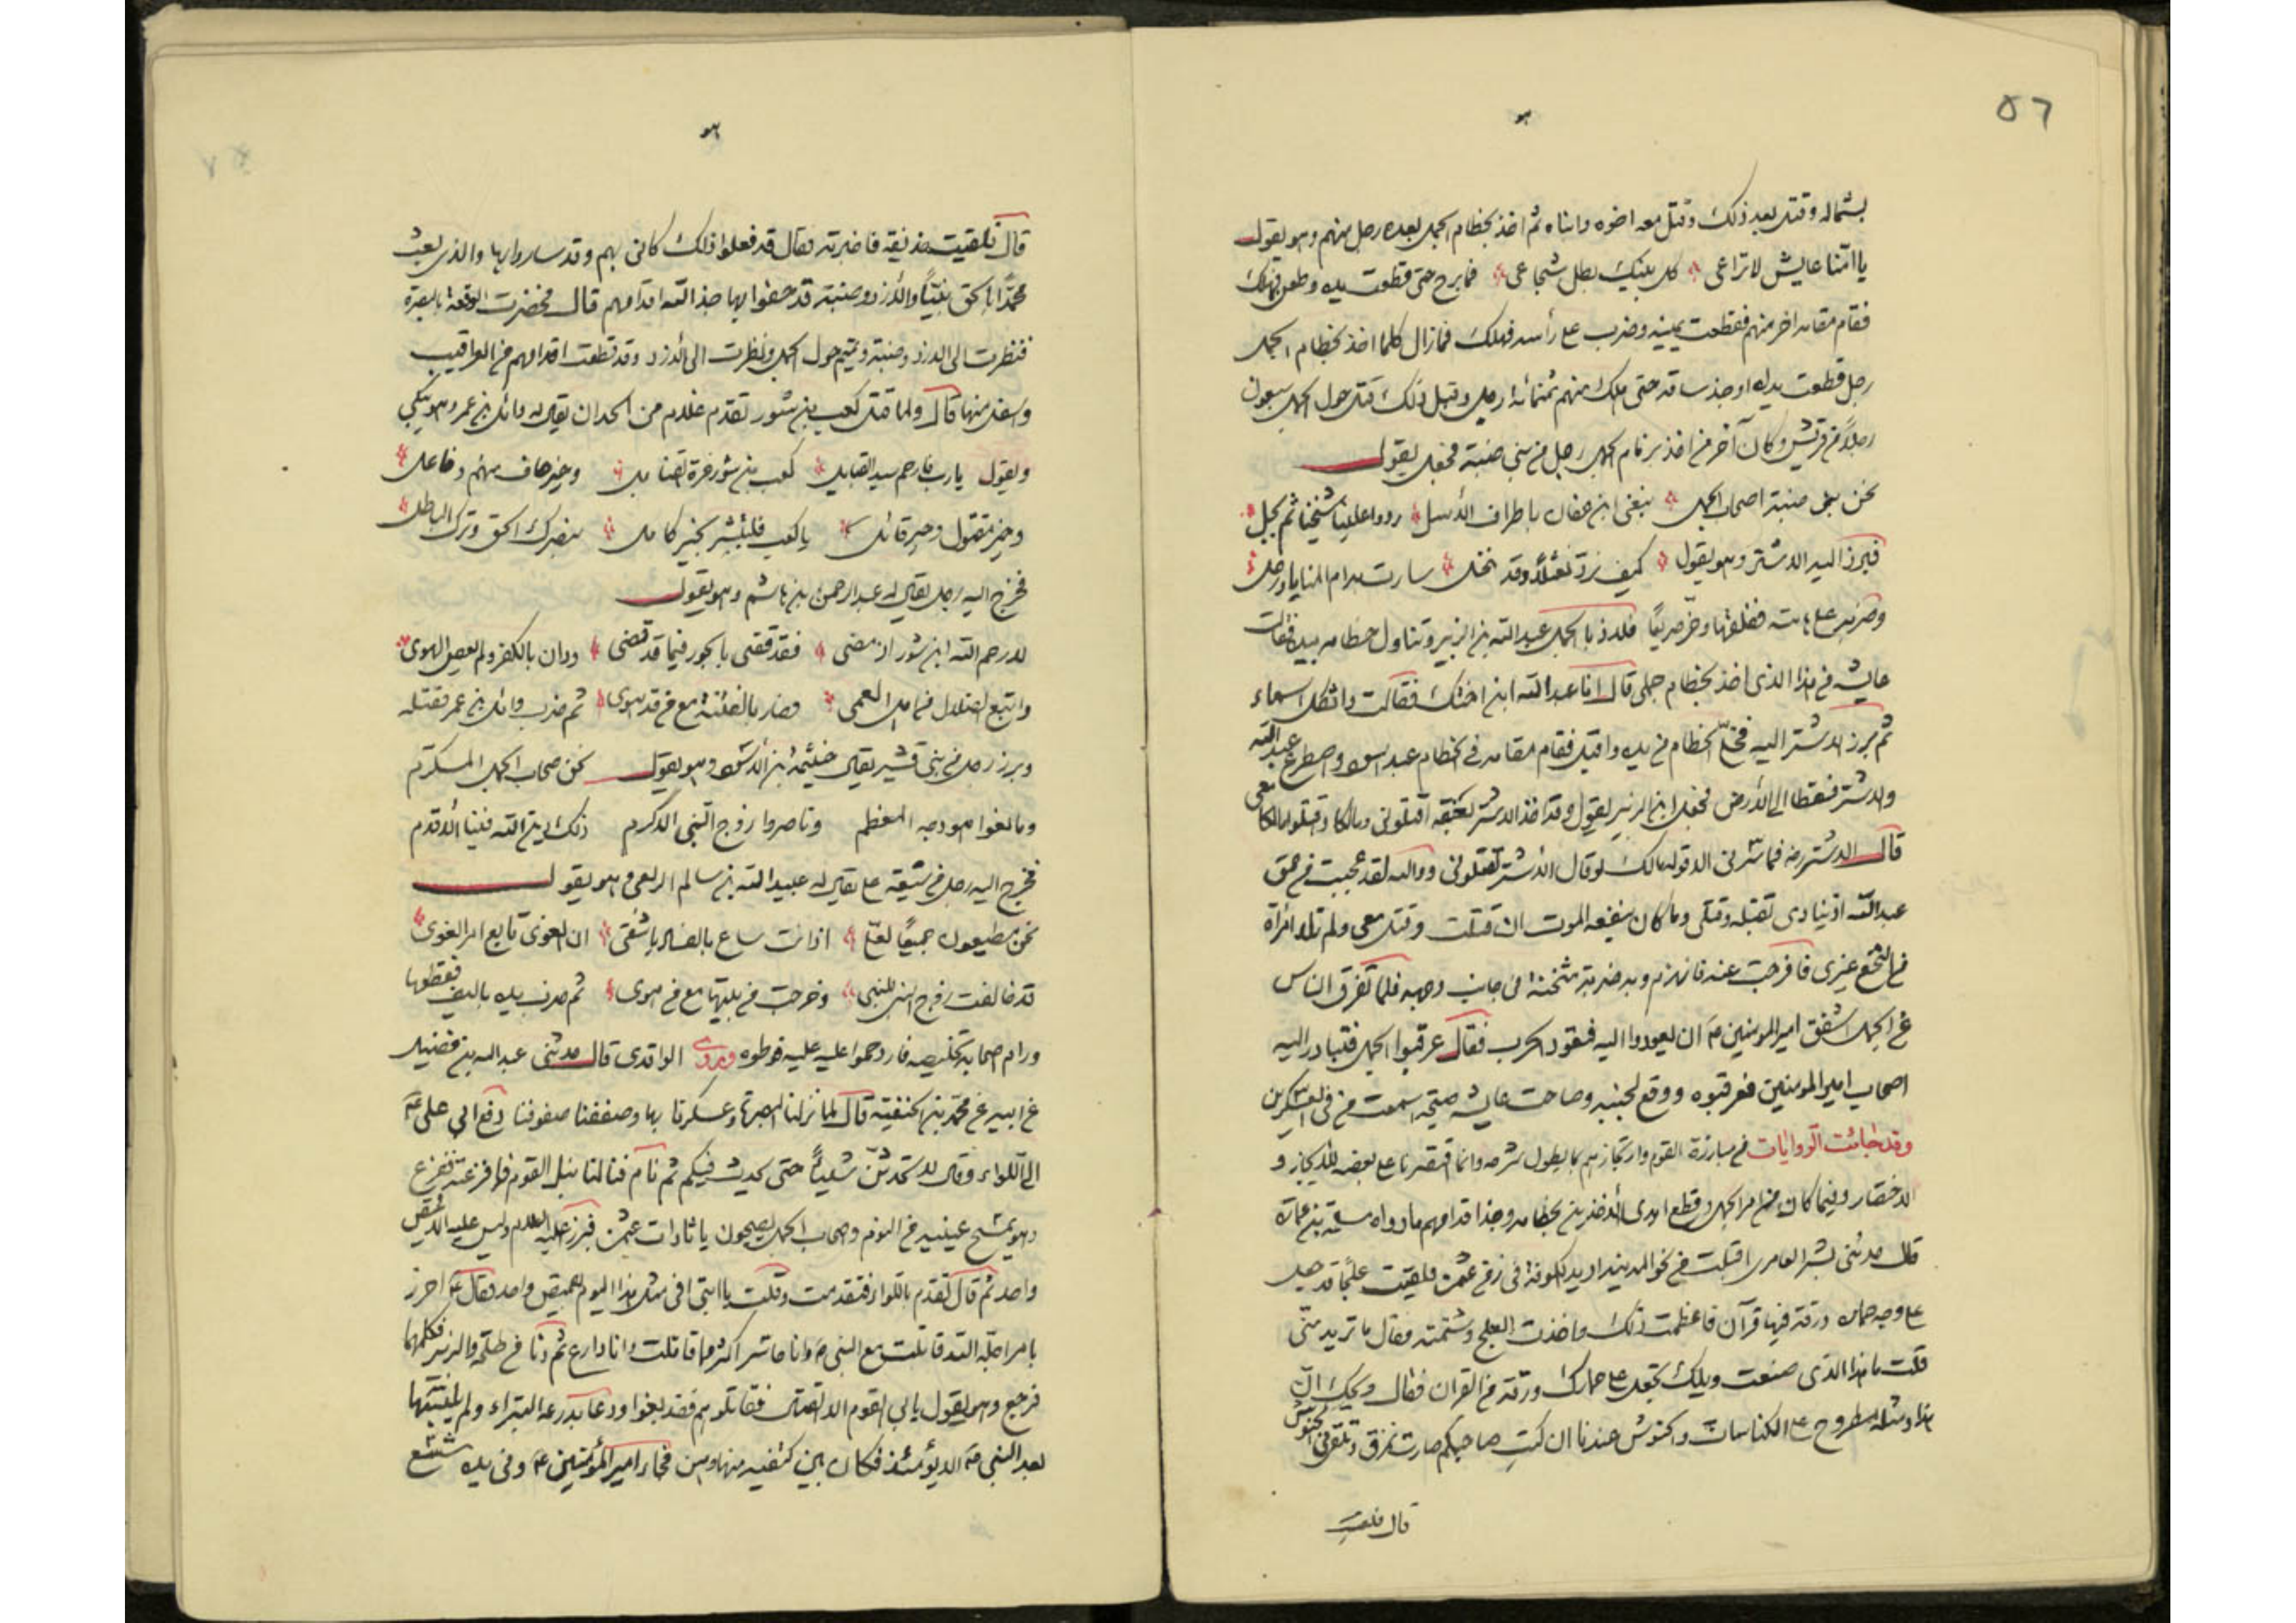 ٥٦
بشماله وقتل بعد ذلك وقتل معه اخوه وابناه ثم اخذ بخطام الجمل بعده رجل منهم وهو يقول
يا امّنا عايش لا تراعى كل بنيك بطل شجاعى فما برح حتى قطعت يده وطعن فهلك
فقام مقامه اخر منهم فقطعت يمينه وضرب على رأسه فهلك فما زال كلما اخذ بخطام الجمل
رجل قطعت يداه او جذ ساقه حتى هلك منهم ثمنمائة رجل وقبل ذلك قتل حول الجمل سبعون
رجلاً من قريش وكان آخر من اخذ بزمام الجمل رجل من بنى ضبة فجعل يقول
نحن بنى ضبة اصحاب الجمل ننعى ابن عفان باطراف الأسل ردوا علينا شيخنا ثم بجل
فبرز اليه الاشتر وهو يقول كيف نرد نعثلاً وقد قحل سارت به ام المنايا ورحل
وضربه على هامته ففلقها وخرّ صريعاً فلاذ بالجمل عبد الله بن الزبير وتناول خطامه بيده فقالت
عايشه من هذا الذى اخذ بخطام جملى قال انا عبد الله ابن اختك فقالت واثكل اسماء
ثم برز الاشتر اليه فخلّ الخطام من يده واقبل فقام مقامه فى الخطام عبد اسود واصطرع عبد الله
والاشتر فسقطا الى الأرض فجعل ابن الزبير يقول وقد اخذ الاشتر بعنقه اقتلونى ومالكا واقتلوا مالكا معى
قال الاشتر رضه فما سّرنى الا قوله مالك لو قال الأشتر لقتلونى ووالله لقد عجبت من حمق
عبد الله اذ ينادى بقتله وقتلى وما كان ينفعه الموت ان قتلت وقتل معى ولم تلد امرأة
من النخع غيرى فافرجت عنه فانهزم وبه ضربة مثخنة فى جانب وجهه فلما تفرق الناس
عن الجمل اشفق امير المومنين ع ان يعودوا اليه فتعود الحرب فقال عرقبوا الجمل فتبادر اليه
اصحاب امير المومنين فعرقبوه ووقع لجنبه وصاحت عايشه صيحة اسمعت من فى العسكرين
وقد جائت الروايات فى مبارزة القوم وارتجازهم بما يطول شرحه وانما اقتصرنا على بعضه للايجاز و
الاختصار وفيما كان من امر الجمل وقطع ايدى الأخذين بخطامه وجذ اقدامهم ما رواه
قال حدثنى بشر العامرى اقبلت من نحو المدينة اريد الكوفة فى زمن عثمن فلقيت علجاً قد حمل
على وجه حماره ورقة فيها قرآن فاعظمت ذلك واخذت العلج وشتمته فقال ما تريد منّى
قلت ما هذا الذى صنعت ويلك تجعل على حمارك ورقة من القرآن فقال ويحك انّ
هذا ومثله مطروح على الكناسات والحشوش عندنا ان كتب صاحبكم صارت تمزق وتلقى فى الحشوش
قال فلقيت
قال فلقيت حذيفه فاخبرته فقال قد فعلوا ذلك كانى بهم وقد ساروا بها والذى بعث
محمّداً بالحق نبيّاً والأزد وضبة قد حفوا بها جذ الله اقدامهم قال فحضرت الوقعة بالبصرة
فنظرت الى الازد وضبة وتميم حول الجمل ونظرت الى الأزد وقد قطعت اقدامهم من العراقيب
واسفل منها قال ولما قتل كعب بن سور تقدم غلام من الحدان يقال له وائل بن عمر وهو يبكى
ويقول يا رب فارحم سيد القبايل كعب بن سور غرة القنابل وخير حاف منهم وفاعل
وخير مقتول وخير قائل يا كعب فابشر بخير كامل بنصرك الحق وترك الباطل
فخرج اليه رجل يقال له عبد الرحمن بن هاشم وهو يقول
لا رحم الله ابن سور اذ مضى فقد قضى بالجور فيما قد قضى ودان بالكفر ولم يعص الهوى
واتبع الضلال فما مل العمى وصار بالفتنة مع من قد هوى ثم ضرب وائل بن عمر فقتله
وبرز رجل من بنى قشير يقال خيثمة ابن الأسود وهو يقول نحن صحاب الجمل المكرم
ومانعوا هودجه المعظم وناصروا زوج النبى الاكرم ذلك دين الله فينا الاقدم
فخرج اليه رجل من شيعة على يقال له عبيد الله بن سالم الربعى وهو يقول
نحن مطيعون جميعاً لعلى اذ انت ساع بالفساد يا شقى ان الغوى تابع امر الغوى
قد خالفت زوج النبى للنبى وخرجت من بيتها مع من هوى ثم ضرب يده بالسيف فقطعها
ورام اصحابه تخليصه فازدحموا عليه فوطوه وروى الواقدى قال حدثنى عبد الله بن فضيل
عن ابيه عن محمّد بن الحنفية قال لما نزلنا البصرة وعسكرنا بها وصففنا صفوفنا دفع ابي على ع
الىّ اللواء وقال لا تحدثن شيئاً حتى يحدث فيكم ثم نام فنالنا نبل القوم فافزعته ففزع
وهو يمسح عينيه من النوم واصحاب الجمل يصيحون يا ثارات عثمن فبرز عليه السلام وليس عليه الا قميص
واحد ثم قال تقدم باللواء فتقدمت وقلت يا ابتى افى مثل هذا اليوم بقميص واحد فقال ع احرز
بامراجله الله قاتلت مع النبى ص وانا حاسر اكثر مما قاتلت وانا دارع ثم دنا من طلحة والزبير فكلمهما
فرجع وهو يقول يابى القوم الا القتال فقاتلوهم فقد بغوا ودعا بدرعه البتراء ولم يلبسها
بعد النبى ص الا يومئذ فكان بين كتفيه منها وهن فجاء امير المؤمنين ع وفى يده شسع